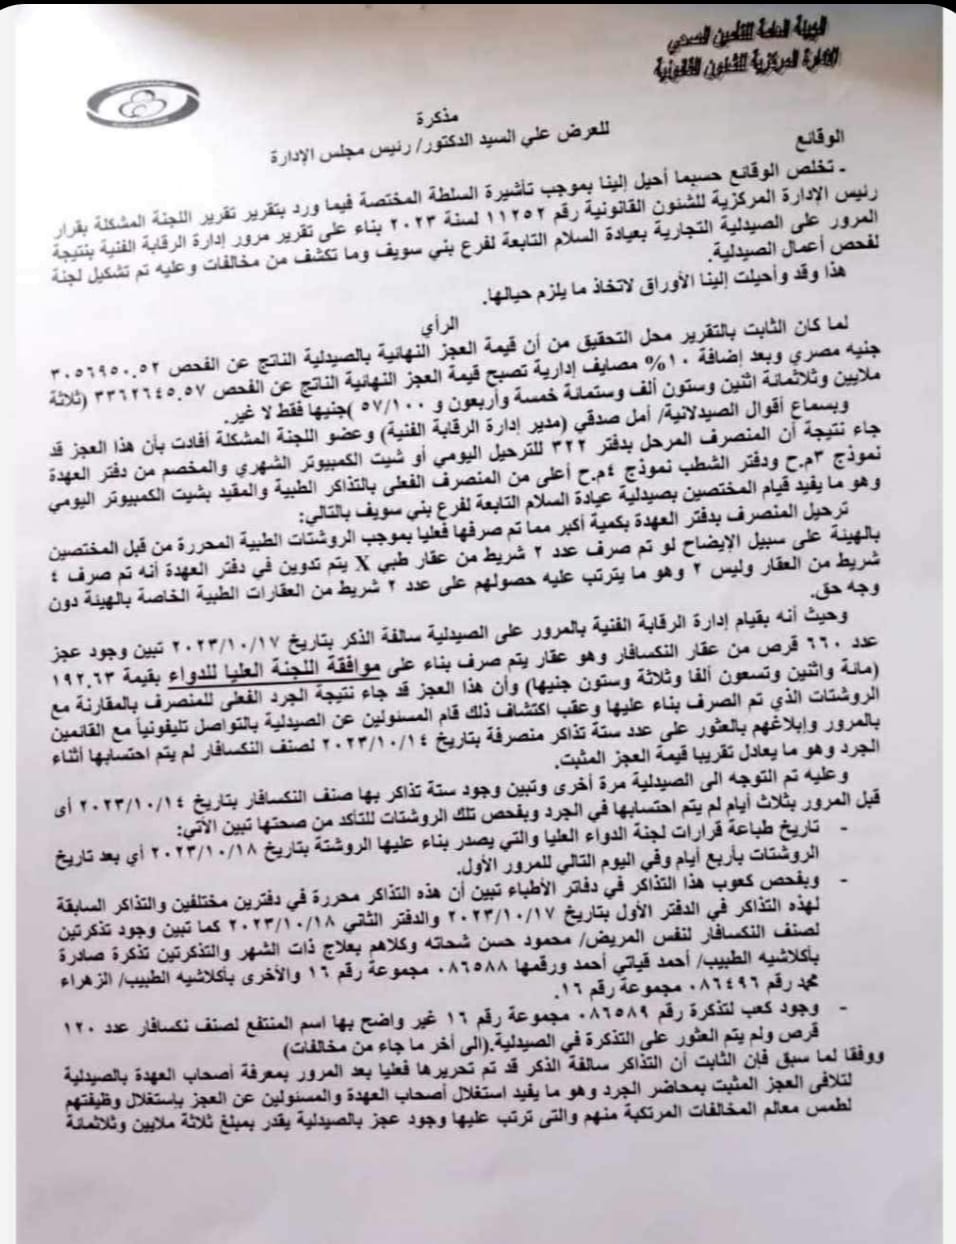 الهيئة العامة للتأمين الصحي
الإدارة المركزية للشئون القانونية
مذكرة
للعرض علي السيد الدكتور/ رئيس مجلس الإدارة
الوقائع
- تخلص الوقائع حسبما أحيل إلينا بموجب تأشيرة السلطة المختصة فيما ورد بتقرير تقرير اللجنة المشكلة بقرار
رئيس الإدارة المركزية للشئون القانونية رقم ١١٢٥٢ لسنة ٢٠٢٣ بناء على تقرير مرور إدارة الرقابة الفنية بنتيجة
المرور على الصيدلية التجارية بعيادة السلام التابعة لفرع بني سويف وما تكشف من مخالفات وعليه تم تشكيل لجنة
لفحص أعمال الصيدلية.
هذا وقد وأحيلت إلينا الأوراق لاتخاذ ما يلزم حيالها.
الرأي
لما كان الثابت بالتقرير محل التحقيق من أن قيمة العجز النهائية بالصيدلية الناتج عن الفحص ٣٠٥٦٩٥٠.٥٢
جنيه مصري وبعد إضافة ١٠% مصايف إدارية تصبح قيمة العجز النهائية الناتج عن الفحص ٣٣٦٢٦٤٥.٥٧ (ثلاثة
ملايين وثلاثمانة اثنين وستون ألف وستمانة خمسة وأربعون و ٥٧/١٠٠ )جنيها فقط لا غير.
وبسماع أقوال الصيدلانية/ أمل صدقي (مدير إدارة الرقابة الفنية) وعضو اللجنة المشكلة أفادت بأن هذا العجز قد
جاء نتيجة أن المنصرف المرحل بدفتر ٣٢٢ للترحيل اليومي أو شيت الكمبيوتر الشهري والمخصم من دفتر العهدة
نموذج ٣م.ح ودفتر الشطب نموذج ٤م.ح أعلى من المنصرف الفعلى بالتذاكر الطبية والمقيد بشيت الكمبيوتر اليومي
وهو ما يفيد قيام المختصين بصيدلية عيادة السلام التابعة لفرع بني سويف بالتالي:
ترحيل المنصرف بدفتر العهدة بكمية أكبر مما تم صرفها فعليا بموجب الروشتات الطبية المحررة من قبل المختصين
بالهيئة على سبيل الإيضاح لو تم صرف عدد ٢ شريط من عقار طبي X يتم تدوين في دفتر العهدة أنه تم صرف ٤
شريط من العقار وليس ٢ وهو ما يترتب عليه حصولهم على عدد ٢ شريط من العقارات الطبية الخاصة بالهيئة دون
وجه حق.
وحيث أنه بقيام إدارة الرقابة الفنية بالمرور على الصيدلية سالفة الذكر بتاريخ ٢٠٢٣/١٠/١٧ تبين وجود عجز
عدد ٦٦٠ قرص من عقار النكسافار وهو عقار يتم صرف بناء على موافقة اللجنة العليا للدواء بقيمة ١٩٢.٦٣
(مانة واثنين وتسعون ألفا وثلاثة وستون جنيها) وأن هذا العجز قد جاء نتيجة الجرد الفعلى للمنصرف بالمقارنة مع
الروشتات الذي تم الصرف بناء عليها وعقب اكتشاف ذلك قام المسئولين عن الصيدلية بالتواصل تليفونياً مع القائمين
بالمرور وإبلاغهم بالعثور على عدد ستة تذاكر منصرفة بتاريخ ٢٠٢٣/١٠/١٤ لصنف النكسافار لم يتم احتسابها أثناء
الجرد وهو ما يعادل تقريبا قيمة العجز المثبت.
وعليه تم التوجه الى الصيدلية مرة أخرى وتبين وجود ستة تذاكر بها صنف النكسافار بتاريخ ٢٠٢٣/١٠/١٤ أى
قبل المرور بثلاث أيام لم يتم احتسابها في الجرد وبفحص تلك الروشتات للتأكد من صحتها تبين الآتي:
- تاريخ طباعة قرارات لجنة الدواء العليا والتي يصدر بناء عليها الروشتة بتاريخ ٢٠٢٣/١٠/١٨ أي بعد تاريخ
الروشتات بأربع أيام وفي اليوم التالي للمرور الأول.
- وبفحص كعوب هذا التذاكر في دفاتر الأطباء تبين أن هذه التذاكر محررة في دفترين مختلفين والتذاكر السابقة
لهذه التذاكر في الدفتر الأول بتاريخ ٢٠٢٣/١٠/١٧ والدفتر الثاني ٢٠٢٣/١٠/١٨ كما تبين وجود تذكرتين
لصنف النكسافار لنفس المريض/ محمود حسن شحاته وكلاهم بعلاج ذات الشهر والتذكرتين تذكرة صادرة
بأكلاشيه الطبيب/ أحمد قياتي أحمد ورقمها ٠٨٦٥٨٨ مجموعة رقم ١٦ والأخرى بأكلاشيه الطبيب/ الزهراء
محمد رقم ٠٨٦٤٩٦ مجموعة رقم ١٦.
- وجود كعب لتذكرة رقم ٠٨٦٥٨٩ مجموعة رقم ١٦ غير واضح بها اسم المنتفع لصنف نكسافار عدد ١٢٠
قرص ولم يتم العثور على التذكرة في الصيدلية.(الى أخر ما جاء من مخالفات)
ووفقا لما سبق فإن الثابت أن التذاكر سالفة الذكر قد تم تحريرها فعليا بعد المرور بمعرفة أصحاب العهدة بالصيدلية
لتلافى العجز المثبت بمحاضر الجرد وهو ما يفيد استغلال أصحاب العهدة والمسئولين عن العجز بإستغلال وظيفتهم
لطمس معالم المخالفات المرتكبة منهم والتى ترتب عليها وجود عجز بالصيدلية يقدر بمبلغ ثلاثة ملايين وثلاثمانة